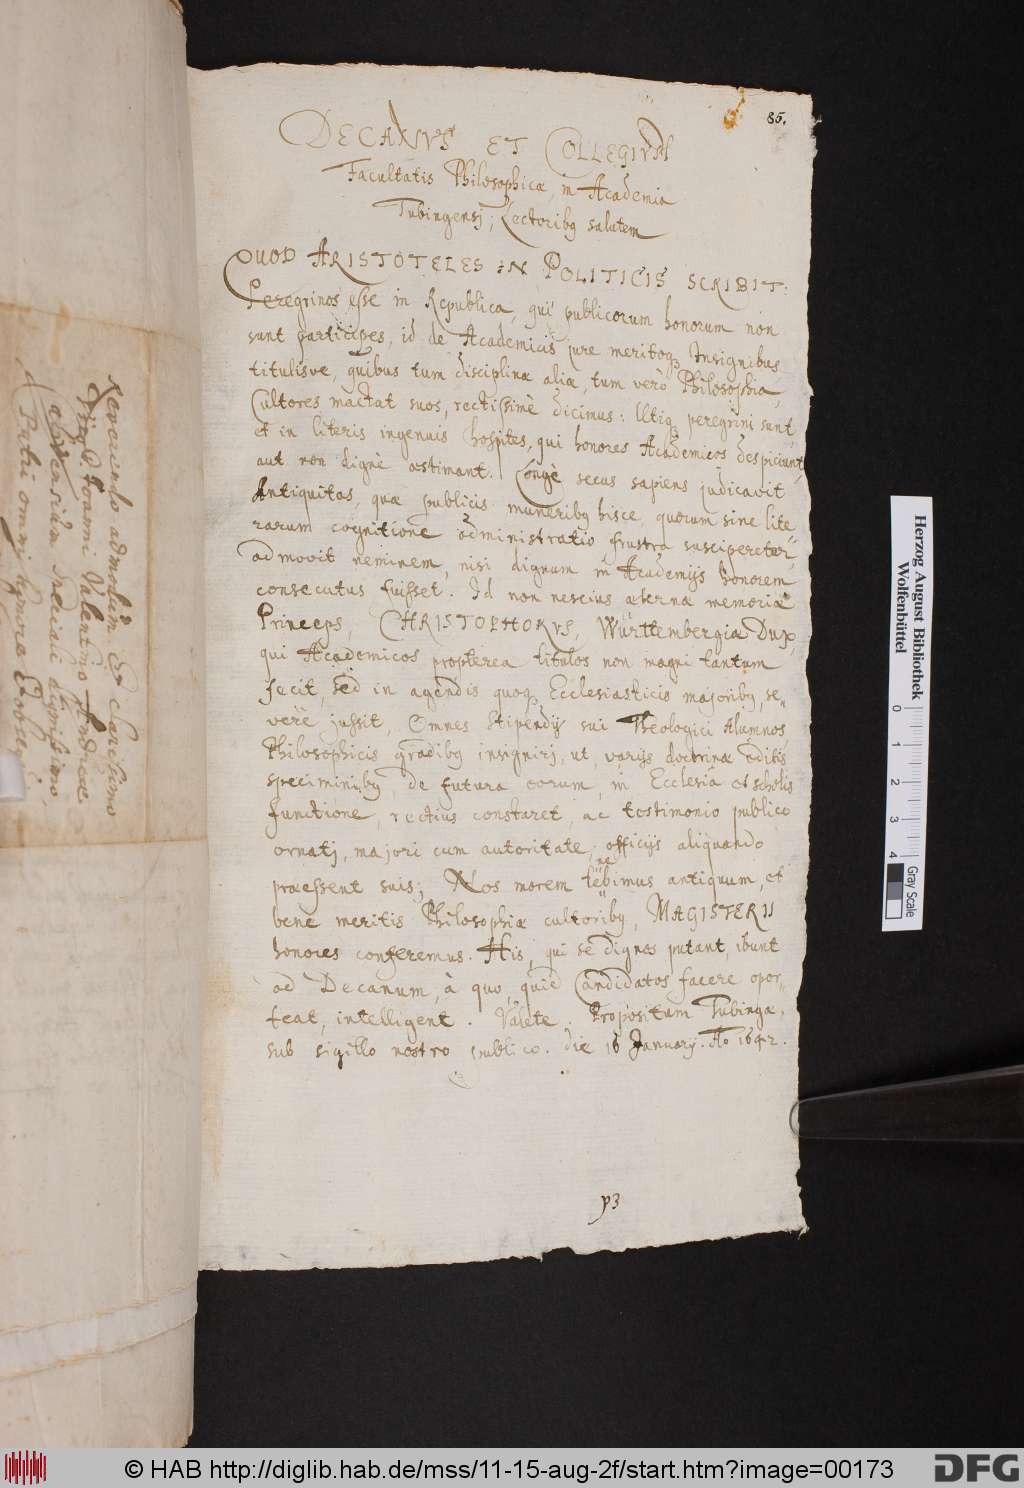 85.
DECANVS ET COLLEGIVM
Facultatis Philosophicæ, in Academia
Tubingensj, Lectoribꝫ salutem
QUOD ARISTOTELES IN POLITICIS SCRIBIT:
Peregrinos esse in Republica, qui publicorum honorum non
sunt participes, id de Academicis jure meritoqꝫ Insignibus
titulisve, quibus tum disciplinæ aliæ, tum verò Philosophia,
Cultores mactat suos, rectissimè dicimus: Utiqꝫ peregrini sunt
et in literis ingenuis hospites, qui honores Academicos despiciunt,
aut non dignè æstimant. Longè secus sapiens judicavit
Antiquitas, quæ publicis muneribꝫ hisce, quorum sine lite
rarum cognitione administratio frustra susciperetur,
admovit neminem, nisi dignum in Academijs honorem
consecutus fuisset. Id non nescius æternæ memoriæ
Princeps, CHRISTOPHORVS, Württembergiæ Dux,
qui Academicos propterea titulos non magni tantum
fecit, sed in agendis quoqꝫ Ecclesiasticis majoribꝫ, se„
verè jussit, Omnes Stipendij sui Theologici Alumnos,
Philosophicis gradibꝫ insignirj, ut, varijs doctrinæ editis
speciminibꝫ, de futura eorum, in Ecclesia et scholis
functione, rectius constaret, ac testimonio publico
ornatj, majori cum autoritate, officijs aliquando
præessent suis; Nos morem tenebimus antiquum, et
bene meritis Philosophiæ cultoribꝫ, MAGISTERII
honores conferemus. His, qui se dignos putant, ibunt
ad Decanum, à quo, quid Candidatos facere opor„
teat, intelligent. Valete. Propositum Tubingæ,
sub sigillo nostro publico. die 16 Januarij. Ao 1642.
p3
Reverendo admodùm et Clarissimo
Viro D. Joanni Valentino Andreæ
Patri omni honore
Herzog August Bibliothek
Wolfenbüttel
0 1 2 3 4
Gray Scale
© HAB http://diglib.hab.de/mss/11-15-aug-2f/start.htm?image=00173
DFG